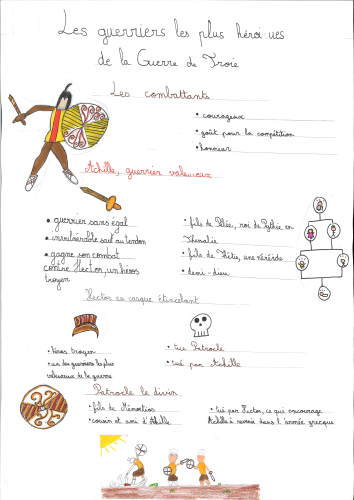 Les guerriers les plus héroïques
de la Guerre de Troie
Les combattants
• courageux
• goût pour la compétition
• honneur
Achille, guerrier valeureux
• guerrier sans égal
• invulnérable sauf au tendon
• gagne son combat
contre Hector, un héros
troyen
• fils de Pélée, roi de Phthie, en
Thessalie
• fils de Thétis, une néréide
• demi-dieu
Hector au casque étincelant
• héros troyen
• un des guerriers les plus
valeureux de la guerre
• tue Patrocle
• tué par Achille
Patrocle le divin
• fils de Ménoitios
• cousin et ami d'Achille
• tué par Hector, ce qui encourage
Achille à revenir dans l'armée grecque